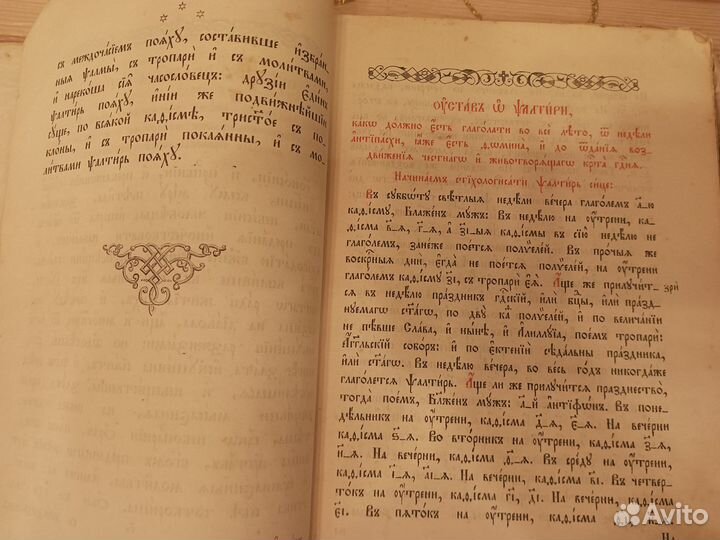 съ междочасїемъ пояху, составивше и҆збран-
ныя ѱалмы, съ тропари и҆ съ молитвами,
и҆ нарекоша сїѧ̀ часословецъ: друзїи є҆динъ
ѱалти́рь пояху, и҆нїи же подвижнѣйшїи
суще, по всякой каѳісмѣ, трист҃ое съ по-
клоны, и҆ съ тропари покаянны, и҆ съ мо-
литвами ѱалти́рь пояху.
Оу҆ставъ ѡ҆ ѱалти́ри,
какѡ должно є҆сть глаголати во всѐ лѣто, ѿ недѣли
а҆нтїпасхи, ꙗ҆́же є҆сть ѳѡмина, и҆ до ѿданїя воз-
движенїя честнагѡ и҆ животворящагѡ крⷭ҇та̀ гдⷭ҇ня.
Начинаемъ стїхологисати ѱалти́рь сице:
Въ суббѡту свѣтлыя недѣли вечера глаголемъ а҃-ю
каѳісму, Блаженъ мужъ: Въ недѣлю на оу҆трени, ка-
ѳісма в҃-я, г҃-я, а҆ з҃і-ыя каѳісмы въ сїю недѣлю не
глаголемъ, занеже поется полѷелей. Въ прочыя же
воскрⷭ҇ныя дни, є҆гда не поется полѷелей, на оу҆трени
глаголемъ каѳісму з҃і, съ тропари є҆я̀. А҆ще же прилучит-
ся въ недѣлю праздникъ гдⷭ҇скїй, и҆ли бц҃ы, и҆ли празд-
нуемагѡ ст҃агѡ, по двꙋ каѳ полѷелей, и҆ по величанїи
не пѣвше Слава, и҆ нынѣ, и҆ А҆ллилуїа, поемъ тропари:
А҆гг҃льскїй соборъ: и҆ по є҆ктенїи сѣдальны праздника,
и҆лѝ ст҃агѡ. Въ недѣлю вечера, во весь годъ никогдаже
глаголется ѱалти́рь. А҆ще ли же прилучится празднество,
тогда поемъ, Блаженъ мужъ: а҃-й а҆нтїфѡнъ. Въ поне-
дѣльникъ на оу҆трени, каѳісма д҃-я, є҃-я. На вечерни
каѳісма ѕ҃-я. Во вторникъ на оу҆трени, каѳісма з҃-я,
и҃-я. На вечерни, каѳісма ѳ҃-я. Въ среду на оу҆трени,
каѳісма і҃-я, а҃і-я. На вечерни, каѳісма в҃і. Въ четвер-
токъ на оу҆трени, каѳісма г҃і, д҃і. На вечерни, каѳісма
є҃і. Въ пятокъ на оу҆трени, каѳісма
На
Avito